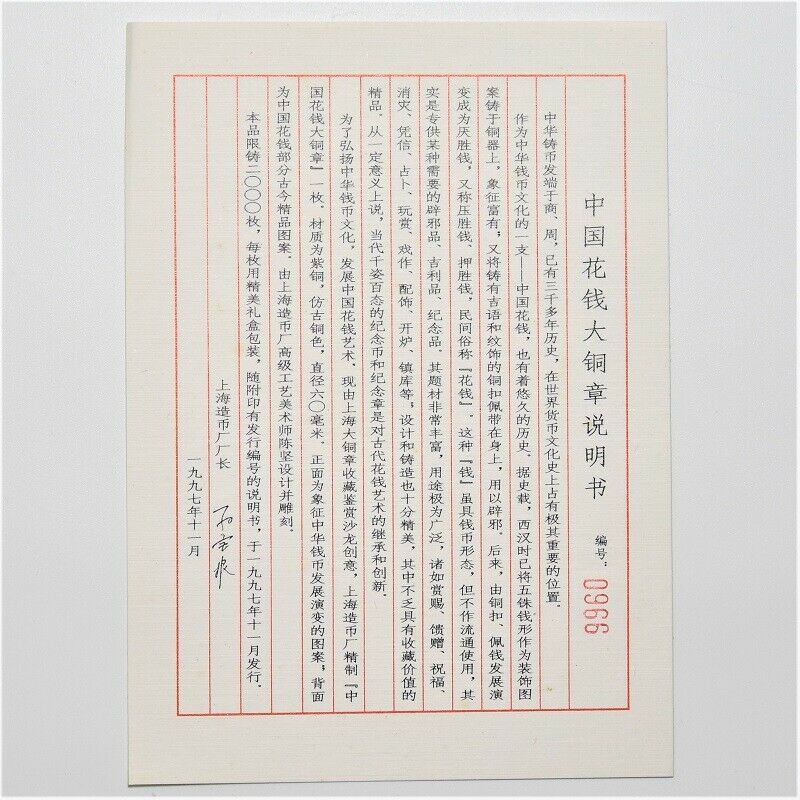 中国花钱大铜章说明书
编号：0966
中华铸币发端于商、周，已有三千多年历史，在世界货币文化史上占有极其重要的位置。
作为中华钱币文化的一支——中国花钱，也有着悠久的历史。据史载，西汉时已将五铢钱形作为装饰图
案铸于铜器上，象征富有；又将铸有吉语和纹饰的铜扣佩带在身上，用以辟邪。后来，由铜扣、佩钱发展演
变成为厌胜钱，又称压胜钱、押胜钱，民间俗称『花钱』。这种『钱』虽具钱币形态，但不作流通使用，其
实是专供某种需要的辟邪品、吉利品、纪念品。其题材非常丰富，用途极为广泛，诸如赏赐、馈赠、祝福、
消灾、凭信、占卜、玩赏、戏作、配饰、开炉、镇库等；设计和铸造也十分精美，其中不乏具有收藏价值的
精品。从一定意义上说，当代千姿百态的纪念币和纪念章是对古代花钱艺术的继承和创新。
为了弘扬中华钱币文化，发展中国花钱艺术，现由上海大铜章收藏鉴赏沙龙创意，上海造币厂精制『中
国花钱大铜章』一枚。材质为紫铜，仿古铜色，直径六〇毫米。正面为象征中华钱币发展演变的图案；背面
为中国花钱部分古今精品图案。由上海造币厂高级工艺美术师陈坚设计并雕刻。
本品限铸二〇〇〇枚，每枚用精美礼盒包装，随附印有发行编号的说明书，于一九九七年十一月发行。
上海造币厂厂长
一九九七年十一月